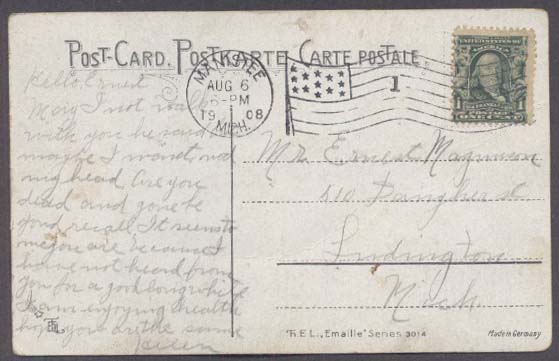 POST-CARD. POSTKARTE CARTE POSTALE
Hello Ernest
May I not walk
with you he said
maybe I wont nod
my head. Are you
dead and gone be
yond recall It seems to
me you are because I
have not heard from
you for a good long while
I am enjoying health
hope you are the same
AUG 6
6-PM
1908
MICH.
1
UNITED STATES OF AMERICA
1 ONE CENT 1
Mr Ernest Magnuson
810
Ludington
Mich.
T.E.L., „Emaille" Series 3014
Made in Germany